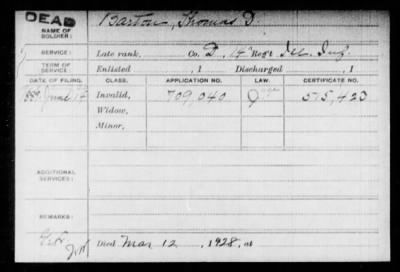 DEAD
NAME OF SOLDIER: Barton, Thomas D.
SERVICE: Late rank, Co. D, 14" Reg't Ill. Inf.
TERM OF SERVICE Enlisted , 1 Discharged , 1
DATE OF FILING. CLASS. APPLICATION NO. LAW. CERTIFICATE NO.
1889 June 14 Invalid, 709,040 575,423
Widow,
Minor,
ADDITIONAL SERVICES:
REMARKS:
Died Mar 12, 1928, at